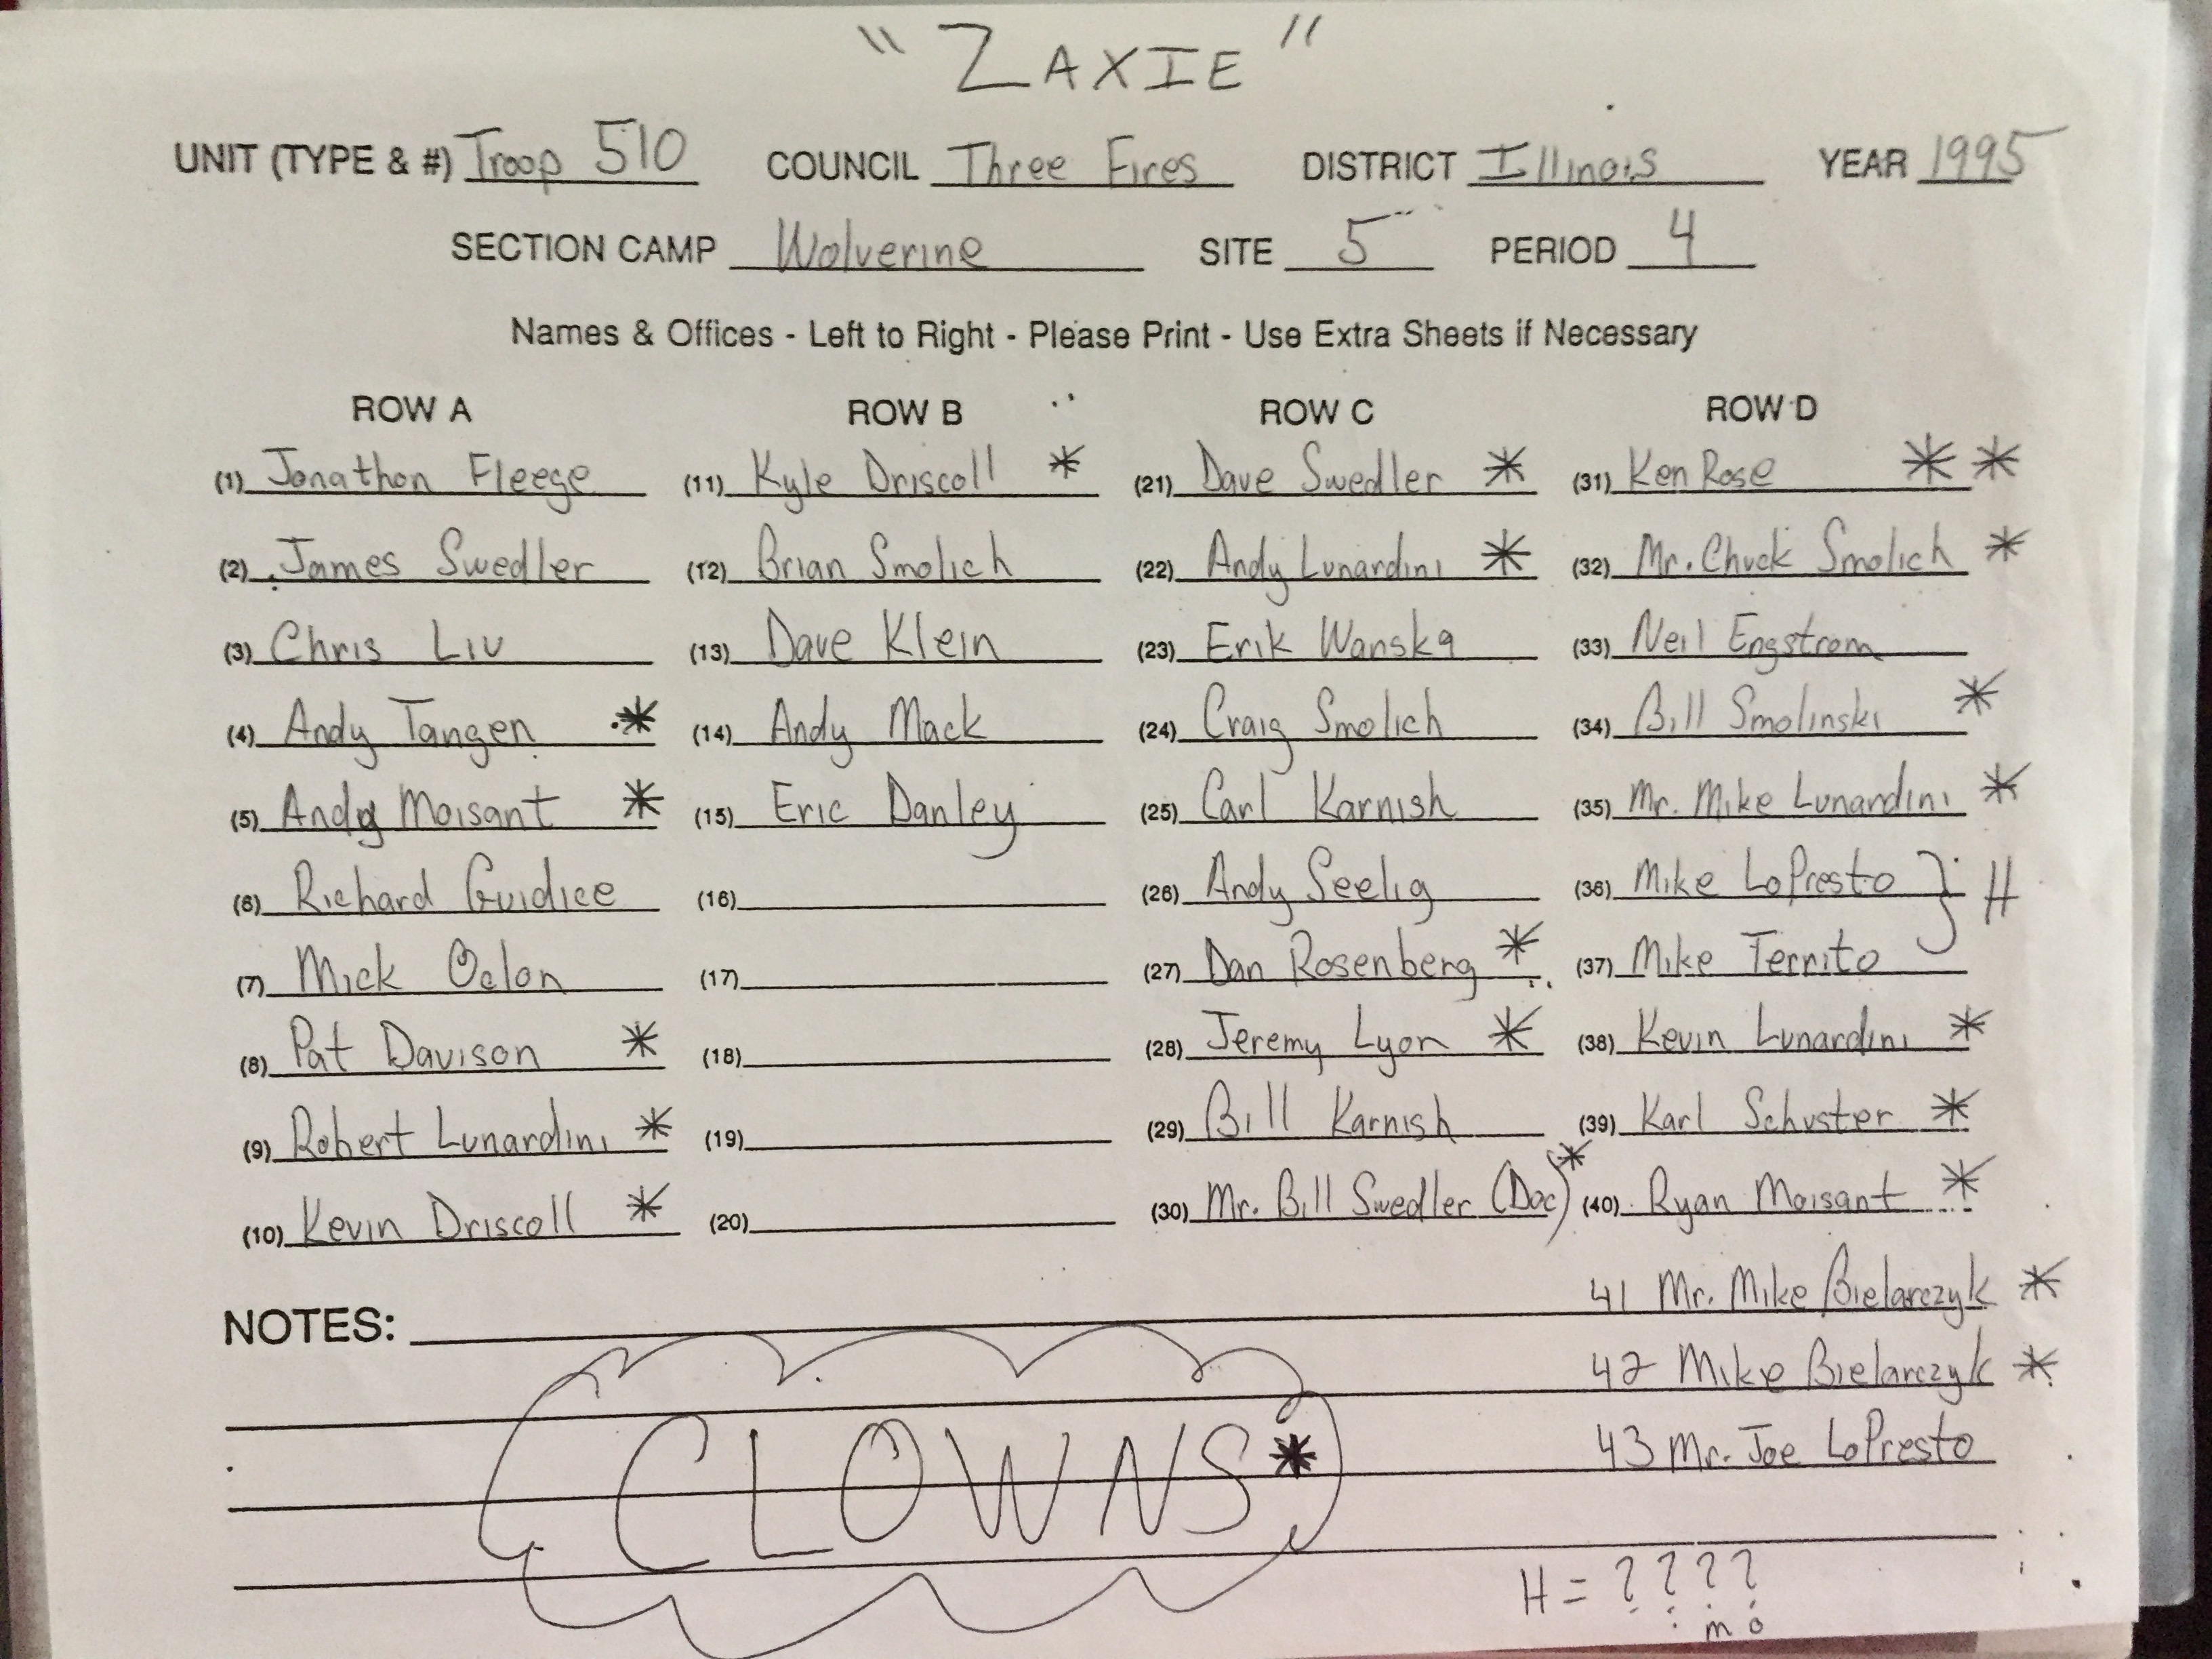 "ZAXIE"
UNIT (TYPE & #) Troop 510 COUNCIL Three Fires DISTRICT Illinois YEAR 1995
SECTION CAMP Wolverine SITE 5 PERIOD 4
Names & Offices - Left to Right - Please Print - Use Extra Sheets if Necessary
ROW A ROW B ROW C ROW D
(1) Jonathon Fleege (11) Kyle Driscoll * (21) Dave Swedler * (31) Ken Rose * *
(2) James Swedler (12) Brian Smolich (22) Andy Lunardini * (32) Mr. Chuck Smolich *
(3) Chris Liu (13) Dave Klein (23) Erik Wanska (33) Neil Engstrom
(4) Andy Tangen * (14) Andy Mack (24) Craig Smolich (34) Bill Smolinski *
(5) Andy Moisant * (15) Eric Danley (25) Carl Karnish (35) Mr. Mike Lunardini *
(6) Richard Guidice (16) (26) Andy Seelig (36) Mike LoPresto } H
(7) Mick Oclon (17) (27) Dan Rosenberg * (37) Mike Territo
(8) Pat Davison * (18) (28) Jeremy Lyon * (38) Kevin Lunardini *
(9) Robert Lunardini * (19) (29) Bill Karnish (39) Karl Schuster *
(10) Kevin Driscoll * (20) (30) Mr. Bill Swedler (Doc) * (40) Ryan Moisant *
41 Mr. Mike Bielarczyk *
NOTES:
42 Mike Bielarczyk *
43 Mr. Joe LoPresto
CLOWNS *
H = ? ? ? ?
m o